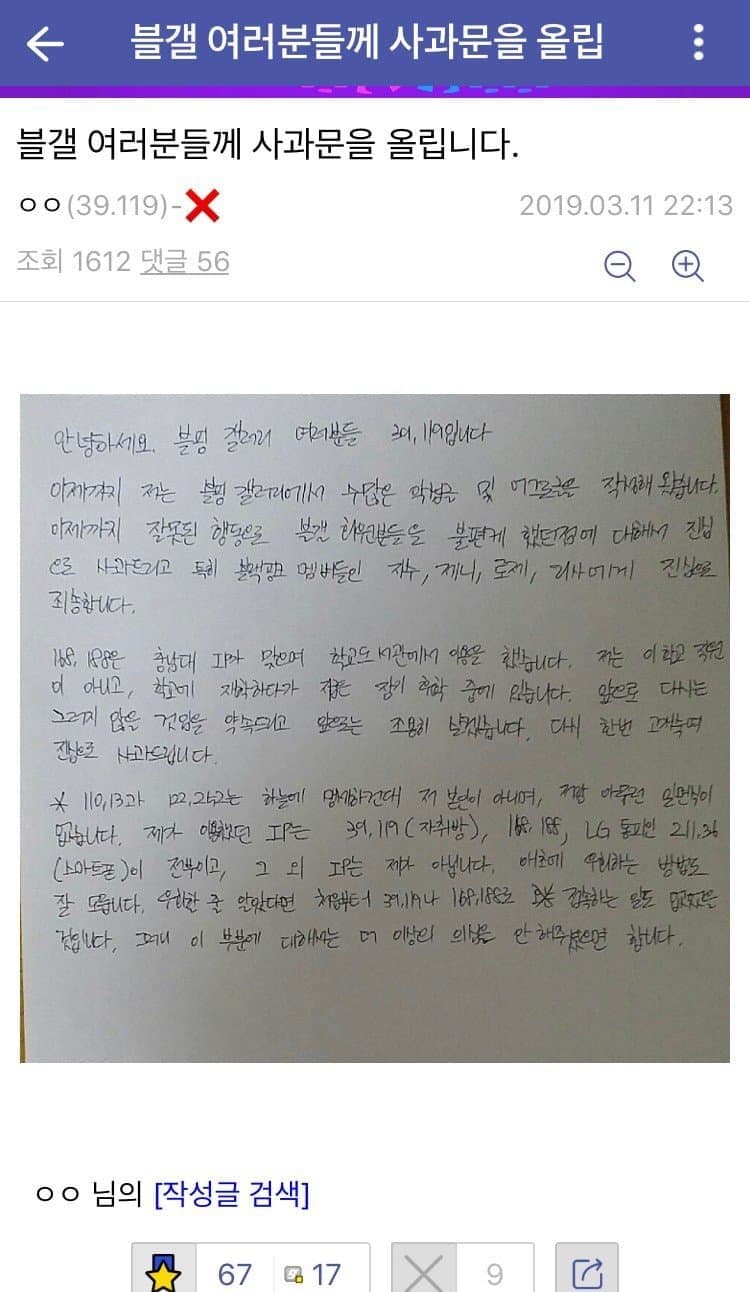 블갤 여러분들께 사과문을 올립
블갤 여러분들께 사과문을 올립니다.
ㅇㅇ(39.119)-❌ 2019.03.11 22:13
조회 1612 댓글 56
안녕하세요. 블핑 갤러리 여러분들 39,119입니다
이제까지 저는 블핑 갤러리에서 수많은 악성글 및 어그로글을 작성해 왔습니다.
이제까지 잘못된 행동으로 블갤 회원분들을 불편케 했던점에 대해서 진심
으로 사과드리고 특히 블랙핑크 멤버들인 지수, 제니, 로제, 리사에게 진심으로
죄송합니다.
168, 188은 충남대 IP가 맞으며 학교도서관에서 이용을 했습니다. 저는 이 학교 직원
이 아니고, 학교에 재학하다가 장기 휴학 중에 있습니다. 앞으로 다시는
그러지 않을 것임을 약속드리고 앞으로는 조용히 살겠습니다. 다시 한번 고개숙여
진심으로 사과드립니다.
* 110,13과 122,252는 하늘에 맹세하건대 저 본인이 아니며, 저랑 아무런 일면식이
없습니다. 제가 이용했던 IP는 39,119(자취방), 168,188, LG 통피인 211.36
(스마트폰)이 전부이고, 그 외 IP는 제가 아닙니다. 애초에 우회하는 방법도
잘 모릅니다. 우회할 줄 알았다면 처음부터 39,119나 168,188로 접속하는 일도 없었을
것입니다. 그러니 이 부분에 대해서는 더 이상의 의심을 안 해주셨으면 합니다.
ㅇㅇ 님의 [작성글 검색]
67 17 9